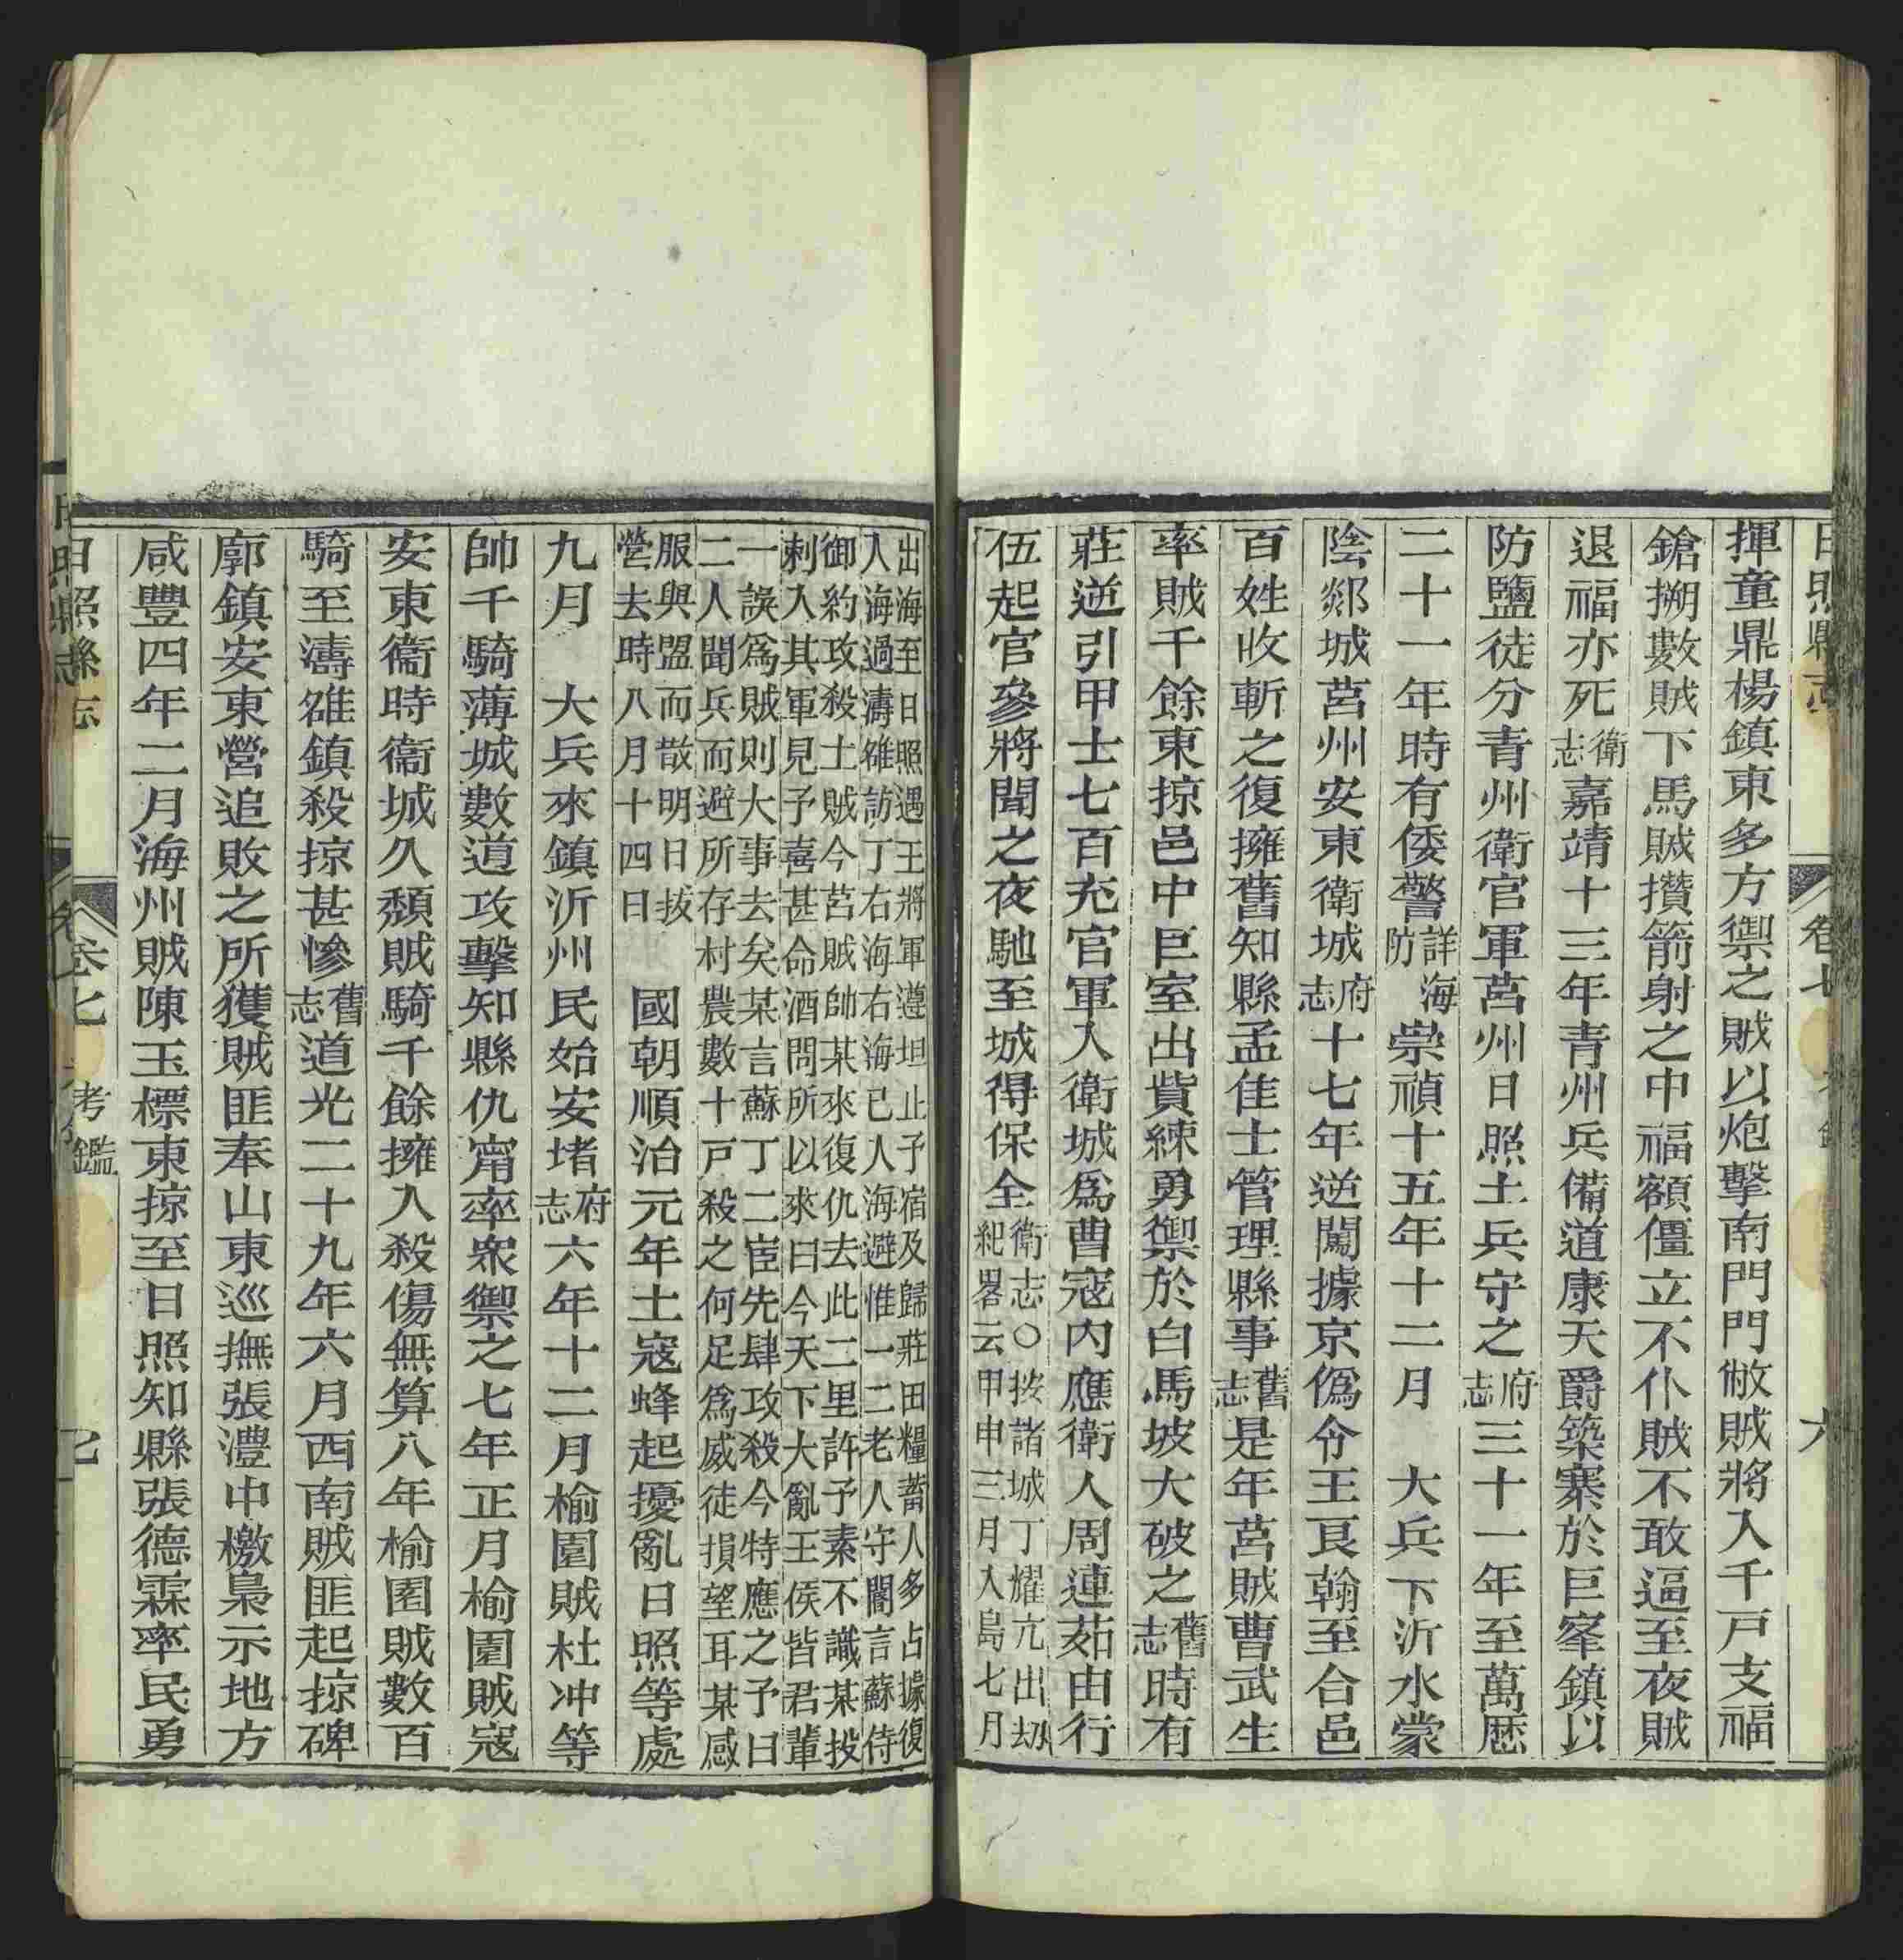 揮童鼎楊鎮東多方禦之賊以炮擊南門門敝賊將入千戸支福
鎗搠數賊下馬賊攢箭射之中福額僵立不仆賊不敢逼至夜賊
退福亦死衛志嘉靖十三年青州兵備道康天爵築寨於巨峯鎮以
防鹽徒分青州衛官軍莒州日照土兵守之府志三十一年至萬歷
二十一年時有倭警詳海防崇禎十五年十二月 大兵下沂水蒙
陰郯城莒州安東衛城府志十七年逆闖據京僞令王艮翰至合邑
百姓收斬之復擁舊知縣孟佳士管理縣事舊志是年莒賊曹武生
率賊千餘東掠邑中巨室出貲練勇禦於白馬坡大破之舊志時有
莊逆引甲士七百充官軍入衛城爲曹寇內應衛人周連茹由行
伍起官參將聞之夜馳至城得保全衛志○按諸城丁耀亢出劫
紀畧云甲申三月入島七月
日照縣志
卷七
六
出海至日照遇王將軍遵坦止予宿及歸莊田糧蓄人多占據復
入海過濤雒訪丁右海右海已人海避惟一二老人守閽言蘇侍
御約攻殺土賊今莒賊帥某來復仇去此二里許予素不識某投
刺入其軍見予喜甚命酒問所以來曰今天下大亂王侯皆君輩
一誤爲賊則大事去矣某言蘇丁二宦先肆攻殺今特應之予曰
二人聞兵而遯所存村農數十戸殺之何足爲威徒損望耳某感
服與盟而散明日拔
營去時八月十四日
國朝順治元年土寇蜂起擾亂日照等處
九月 大兵來鎮沂州民始安堵府志六年十二月榆園賊杜冲等
帥千騎薄城數道攻擊知縣仇甯率衆禦之七年正月榆園賊寇
安東衞時衞城久頹賊騎千餘擁入殺傷無算八年榆園賊數百
騎至濤雒鎮殺掠甚慘舊志道光二十九年六月西南賊匪起掠碑
廓鎮安東營追敗之所獲賊匪奉山東巡撫張澧中檄梟示地方
咸豐四年二月海州賊陳玉標東掠至日照知縣張德霖率民勇
日照縣志
卷七
考鑑
七